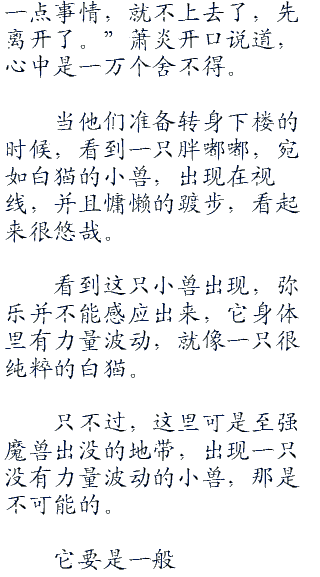 一点事情，就不上去了，先
离开了。”萧炎开口说道，
心中是一万个舍不得。
当他们准备转身下楼的
时候，看到一只胖嘟嘟，宛
如白猫的小兽，出现在视
线，并且慵懒的踱步，看起
来很悠哉。
看到这只小兽出现，弥
乐并不能感应出来，它身体
里有力量波动，就像一只很
纯粹的白猫。
只不过，这里可是至强
魔兽出没的地带，出现一只
没有力量波动的小兽，那是
不可能的。
它要是一般